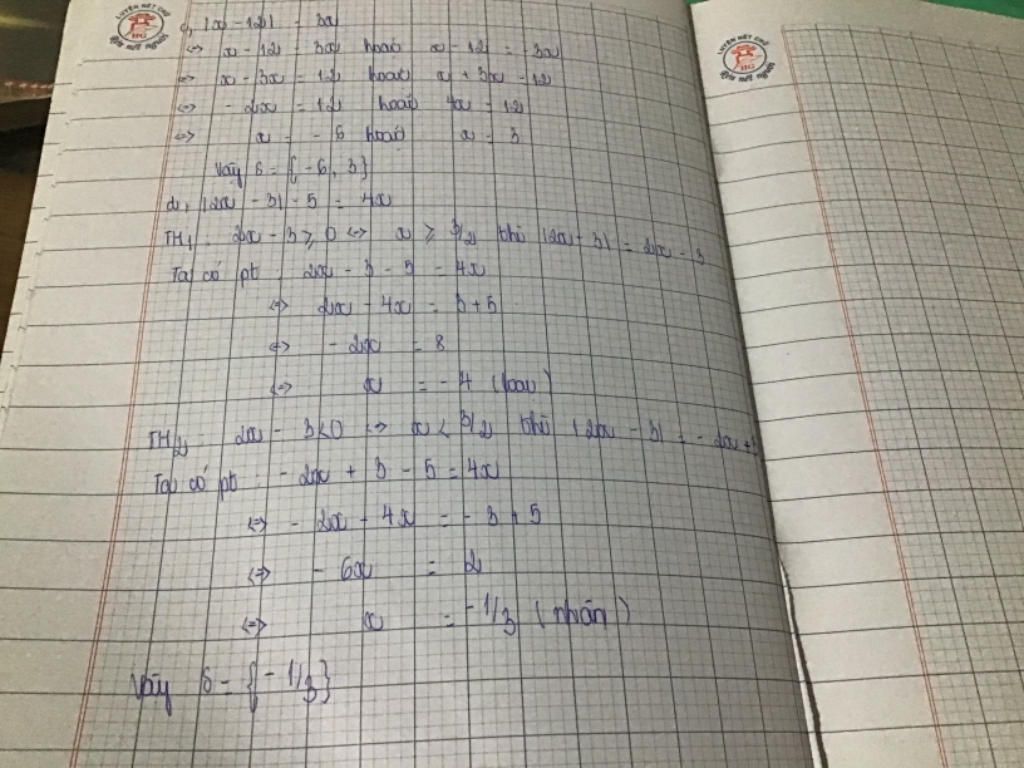 LUYỆN NÉT CHỮ
HG
RÈN NẾT NGƯỜI
LUYỆN NÉT CHỮ
HG
RÈN NẾT NGƯỜI
c, |x - 12| = 3x
<=> x - 12 = 3x hoặc x - 12 = -3x
<=> x - 3x = 12 hoặc x + 3x = 12
<=> - 2x = 12 hoặc 4x = 12
<=> x = - 6 hoặc x = 3
Vậy S = {-6, 3}
d, |2x - 3| - 5 = 4x
TH1: 2x - 3 ≥ 0 <=> x ≥ 3/2 thì |2x - 3| = 2x - 3
Ta có pt: 2x - 3 - 5 = 4x
<=> 2x - 4x = 3 + 5
<=> - 2x = 8
<=> x = - 4 (loại)
TH2: 2x - 3 < 0 <=> x < 3/2 thì |2x - 3| = - 2x + 3
Ta có pt: - 2x + 3 - 5 = 4x
<=> - 2x - 4x = - 3 + 5
<=> - 6x = 2
<=> x = -1/3 (nhận)
Vậy S = {-1/3}